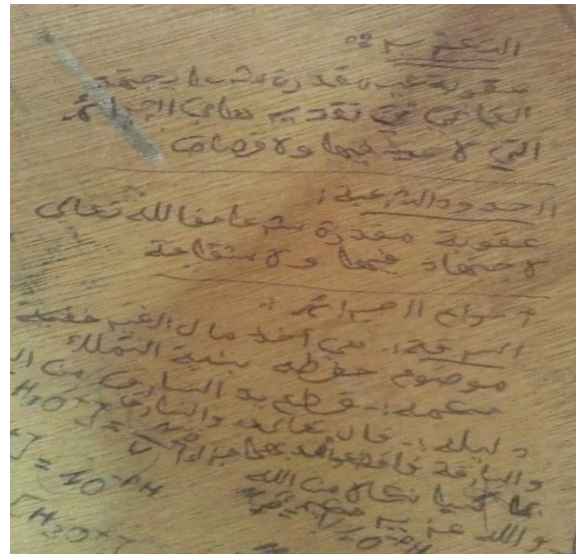 التعزير:
عقوبة غير مقدرة شرعا يجتهد
القاضي في تقديرها في الجرائم
التي لا حد فيها ولا قصاص
الحدود الشرعية:
عقوبة مقدرة شرعا حقا لله تعالى
لا اجتهاد فيها ولا شفاعة
الجرائم
السرقة: هي أخذ مال الغير خفية
موضوع حفظه بنية التملك
حكمها: قطع يد السارق من
دليله: قال تعالى والسارق
والسارقة فاقطعوا أيديهما جزاء
بما كسبا نكالا من الله
والله عزيز حكيم
H₃O⁺
=10⁻ᵖᴴ
[H₃O⁺]